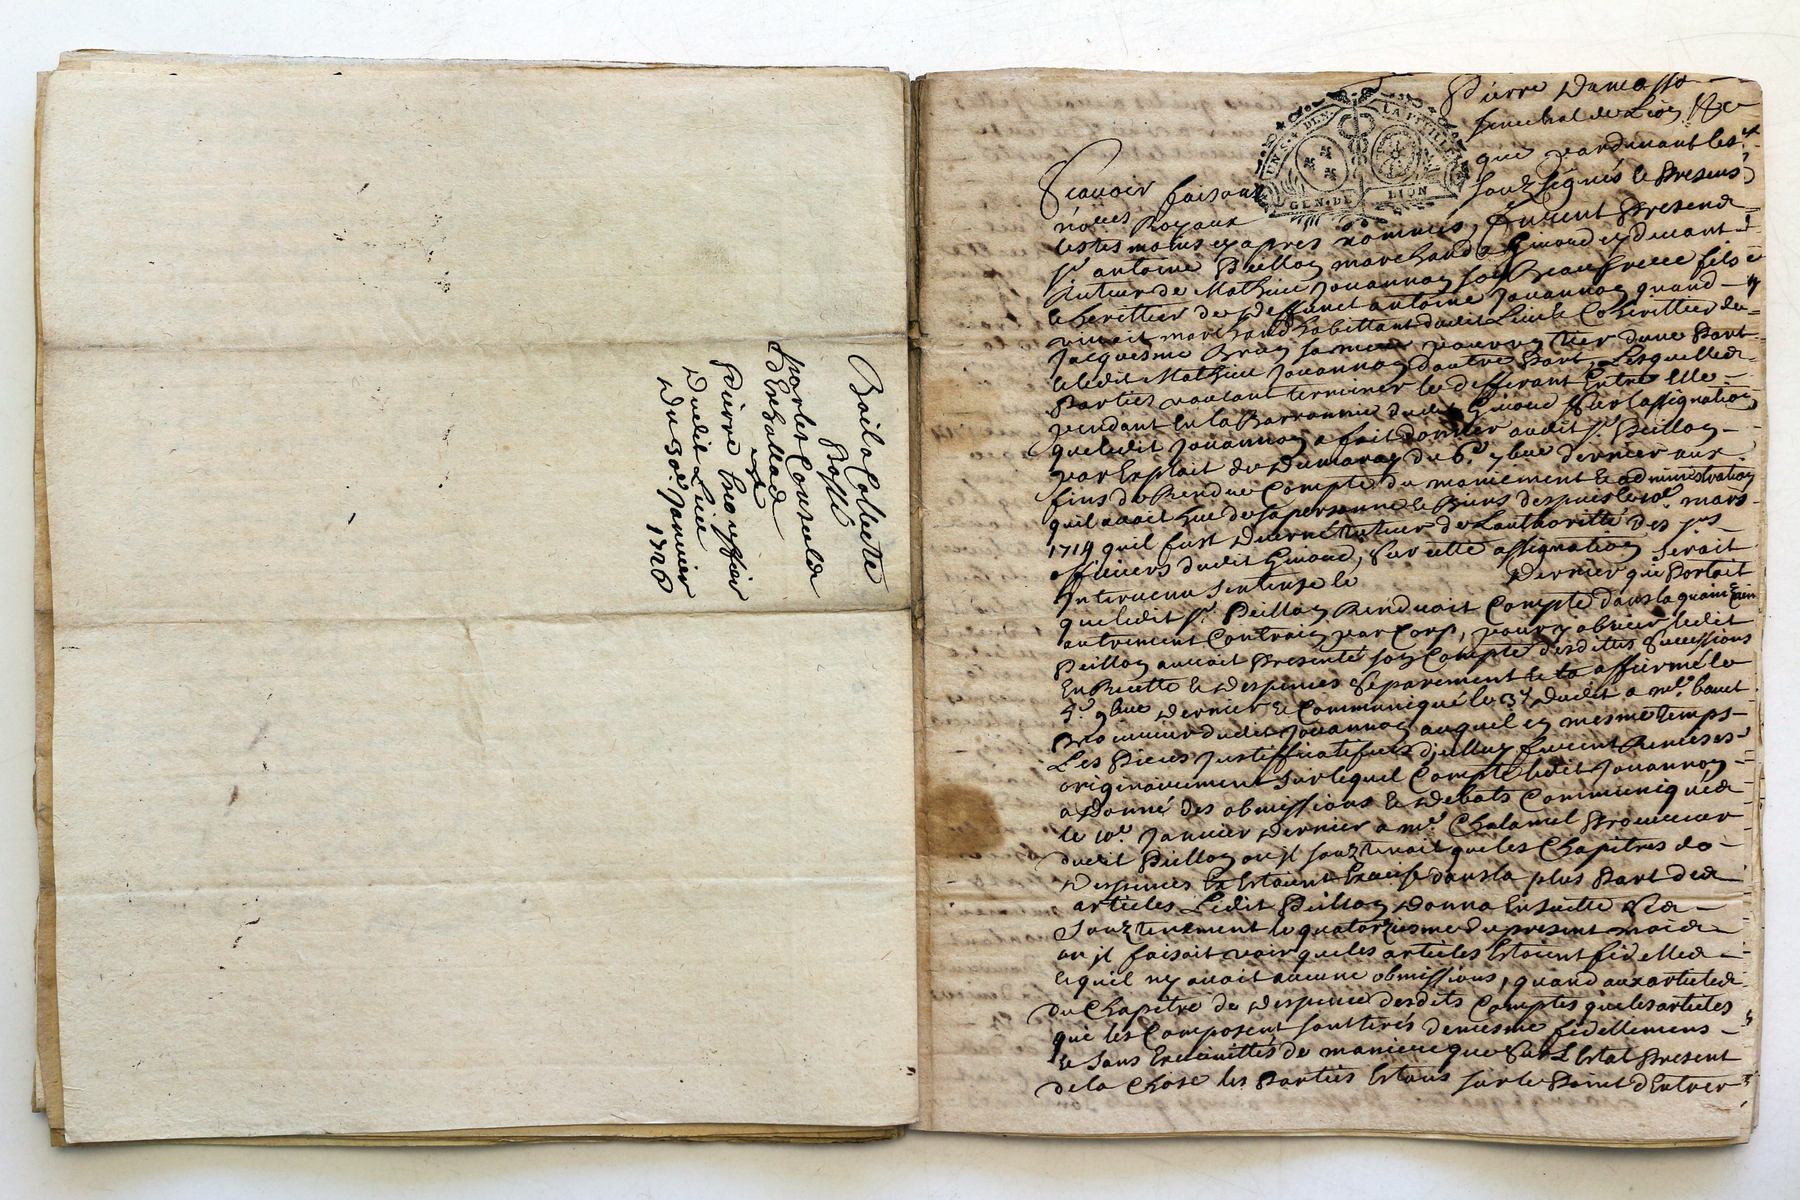 Bail a Colbecte
Passé
par les Consuls
a
Pierre
Dudit Lieu
Du 30e. Janvier
1726
Pierre Damasse
senechal de Lion
GEN. DE LION
Scavoir faisons que pardevant les
no.res Royaux souzsignés & Presens
les tesmoins cy apres nommés, furent Presens
sr. antoine Peillon marchand de Givord cy devant
tuteur de Mathieu Jouannon son Beaufrere fils &
heritier de deffunct antoine Jouannon quand
vivait marchand habittant dudit Lieu & Coherittier de
Jacquesme Brun sa mere d'une Part
& ledit Mathieu Jouannon d'autre Part, Lesquelles
Parties voulant terminer le differant Entre Elle
pendant En la Barronnie dudit Givord Sur l'assignation
que ledit Jouannon a fait donner audit sr. Peillon
par Exploit de Dumaray du 6e. 7bre dernier aux
fins de Rendre Compte du maniement & administration
quil avait heu de sa personne & Biens despuis le 10e. mars
1714 quil fust decerné tuteur de Lauthoritté des srs
officiers dudit Givord, Sur cette assignation serait
Intervenu sentence le dernier qui Portait
que ledit sr. Peillon Rendrait Compte dans la quainzaine
autrement Contrain par Corp, pour y obeier ledit
Peillon auroit Presenté son Compte desdites Successions
En Recette & Despences Separement & la affirmé le
5e. 9bre dernier & Communiqué le dudit a me. bouet
Procureur dudit Jouannon auquel en mesme temps
Les Pieces Justifficatifves d'jcelluy furent Remises
originairement sur lequel Compte ledit Jouannon
a Donné des obmissions & debats Communiqués
le 10e. Janvier dernier a me. Chalamel Procureur
dudit Peillon ou jl souztenait que les Chapitres de
Despences Estoient Excessifs dans la plus Part des
articles Ledit Peillon donna Ensuitte Ses
Souztenement le quatorziesme du present mois
ou jl faisait voir que les articles Estoient fidelles
& quil ny avait aucune obmissions, quand aux articles
du Chapitre de Despence desdits Comptes que les articles
que les Composent sont tirés de mesme fidellement
& sans de maniere que Sur L'Estat Present
de la Chose les Parties Estans sur le Point d'Entrer